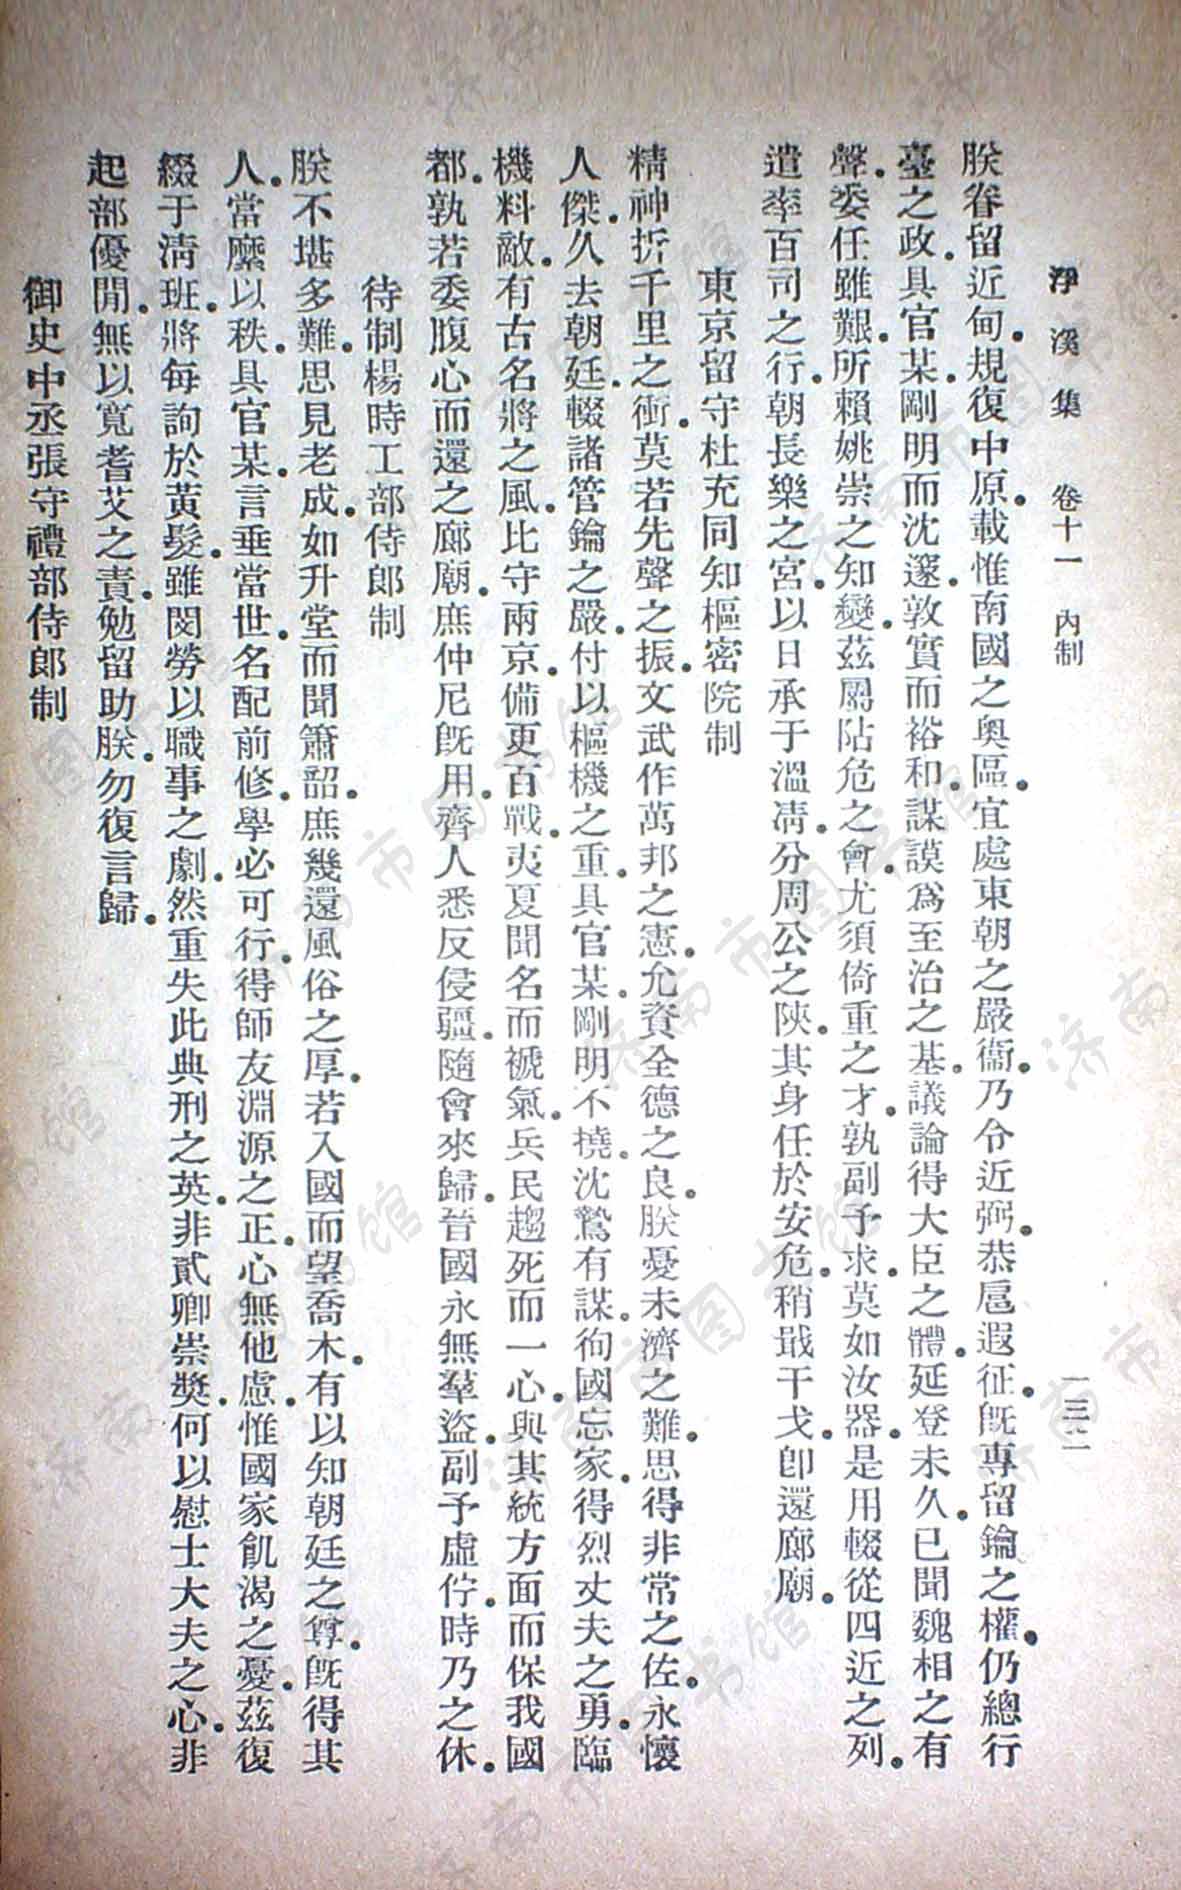 浮溪集　卷十一　內制　一三二
朕眷留近甸。規復中原。載惟南國之奧區。宜處東朝之嚴衞。乃令近弼。恭扈遐征。旣專留鑰之權。仍總行
臺之政。具官某。剛明而沈邃。敦實而裕和。謀謨爲至治之基。議論得大臣之體。延登未久。已聞魏相之有
聲。委任雖艱。所賴姚崇之知變。茲屬阽危之會。尤須倚重之才。孰副予求。莫如汝器。是用輟從四近之列。
遣率百司之行。朝長樂之宮。以日承于溫凊。分周公之陝。其身任於安危。稍戢干戈。卽還廊廟。
東京留守杜充同知樞密院制
精神折千里之衝。莫若先聲之振。文武作萬邦之憲。允資全德之良。朕憂未濟之難。思得非常之佐。永懷
人傑。久去朝廷。輟諸管鑰之嚴。付以樞機之重。具官某。剛明不橈。沈鷙有謀。徇國忘家。得烈丈夫之勇。臨
機料敵。有古名將之風。比守兩京。備更百戰。夷夏聞名而褫氣。兵民趨死而一心。與其統方面而保我國
都。孰若委腹心而還之廊廟。庶仲尼旣用。齊人悉反侵疆。隨會來歸。晉國永無羣盜。副予虛佇。時乃之休。
待制楊時工部侍郎制
朕不堪多難。思見老成。如升堂而聞簫韶。庶幾還風俗之厚。若入國而望喬木。有以知朝廷之尊。旣得其
人。當縻以秩。具官某。言垂當世。名配前修。學必可行。得師友淵源之正。心無他慮。惟國家飢渴之憂。茲復
綴于淸班。將每詢於黃髮。雖閔勞以職事之劇。然重失此典刑之英。非貳卿崇奬。何以慰士大夫之心。非
起部優閒。無以寬耆艾之責。勉留助朕。勿復言歸。
御史中丞張守禮部侍郎制
济南市图书馆